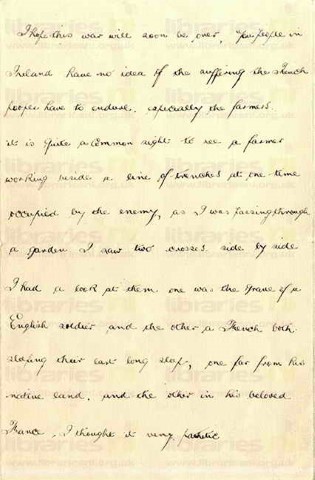 I hope this war will soon be over. You people in
Ireland have no idea of the suffering the French
people have to endure. especially the farmers.
it is quite a common sight to see a farmer
working beside a line of trenches at one time
occupied by the enemy, as I was passing through
a garden I saw two crosses side by side
I had a look at them one was the grave of a
English soldier and the other a French both
their last long sleep, one far from his
native land. and the other in his beloved
France. I thought it very pathetic